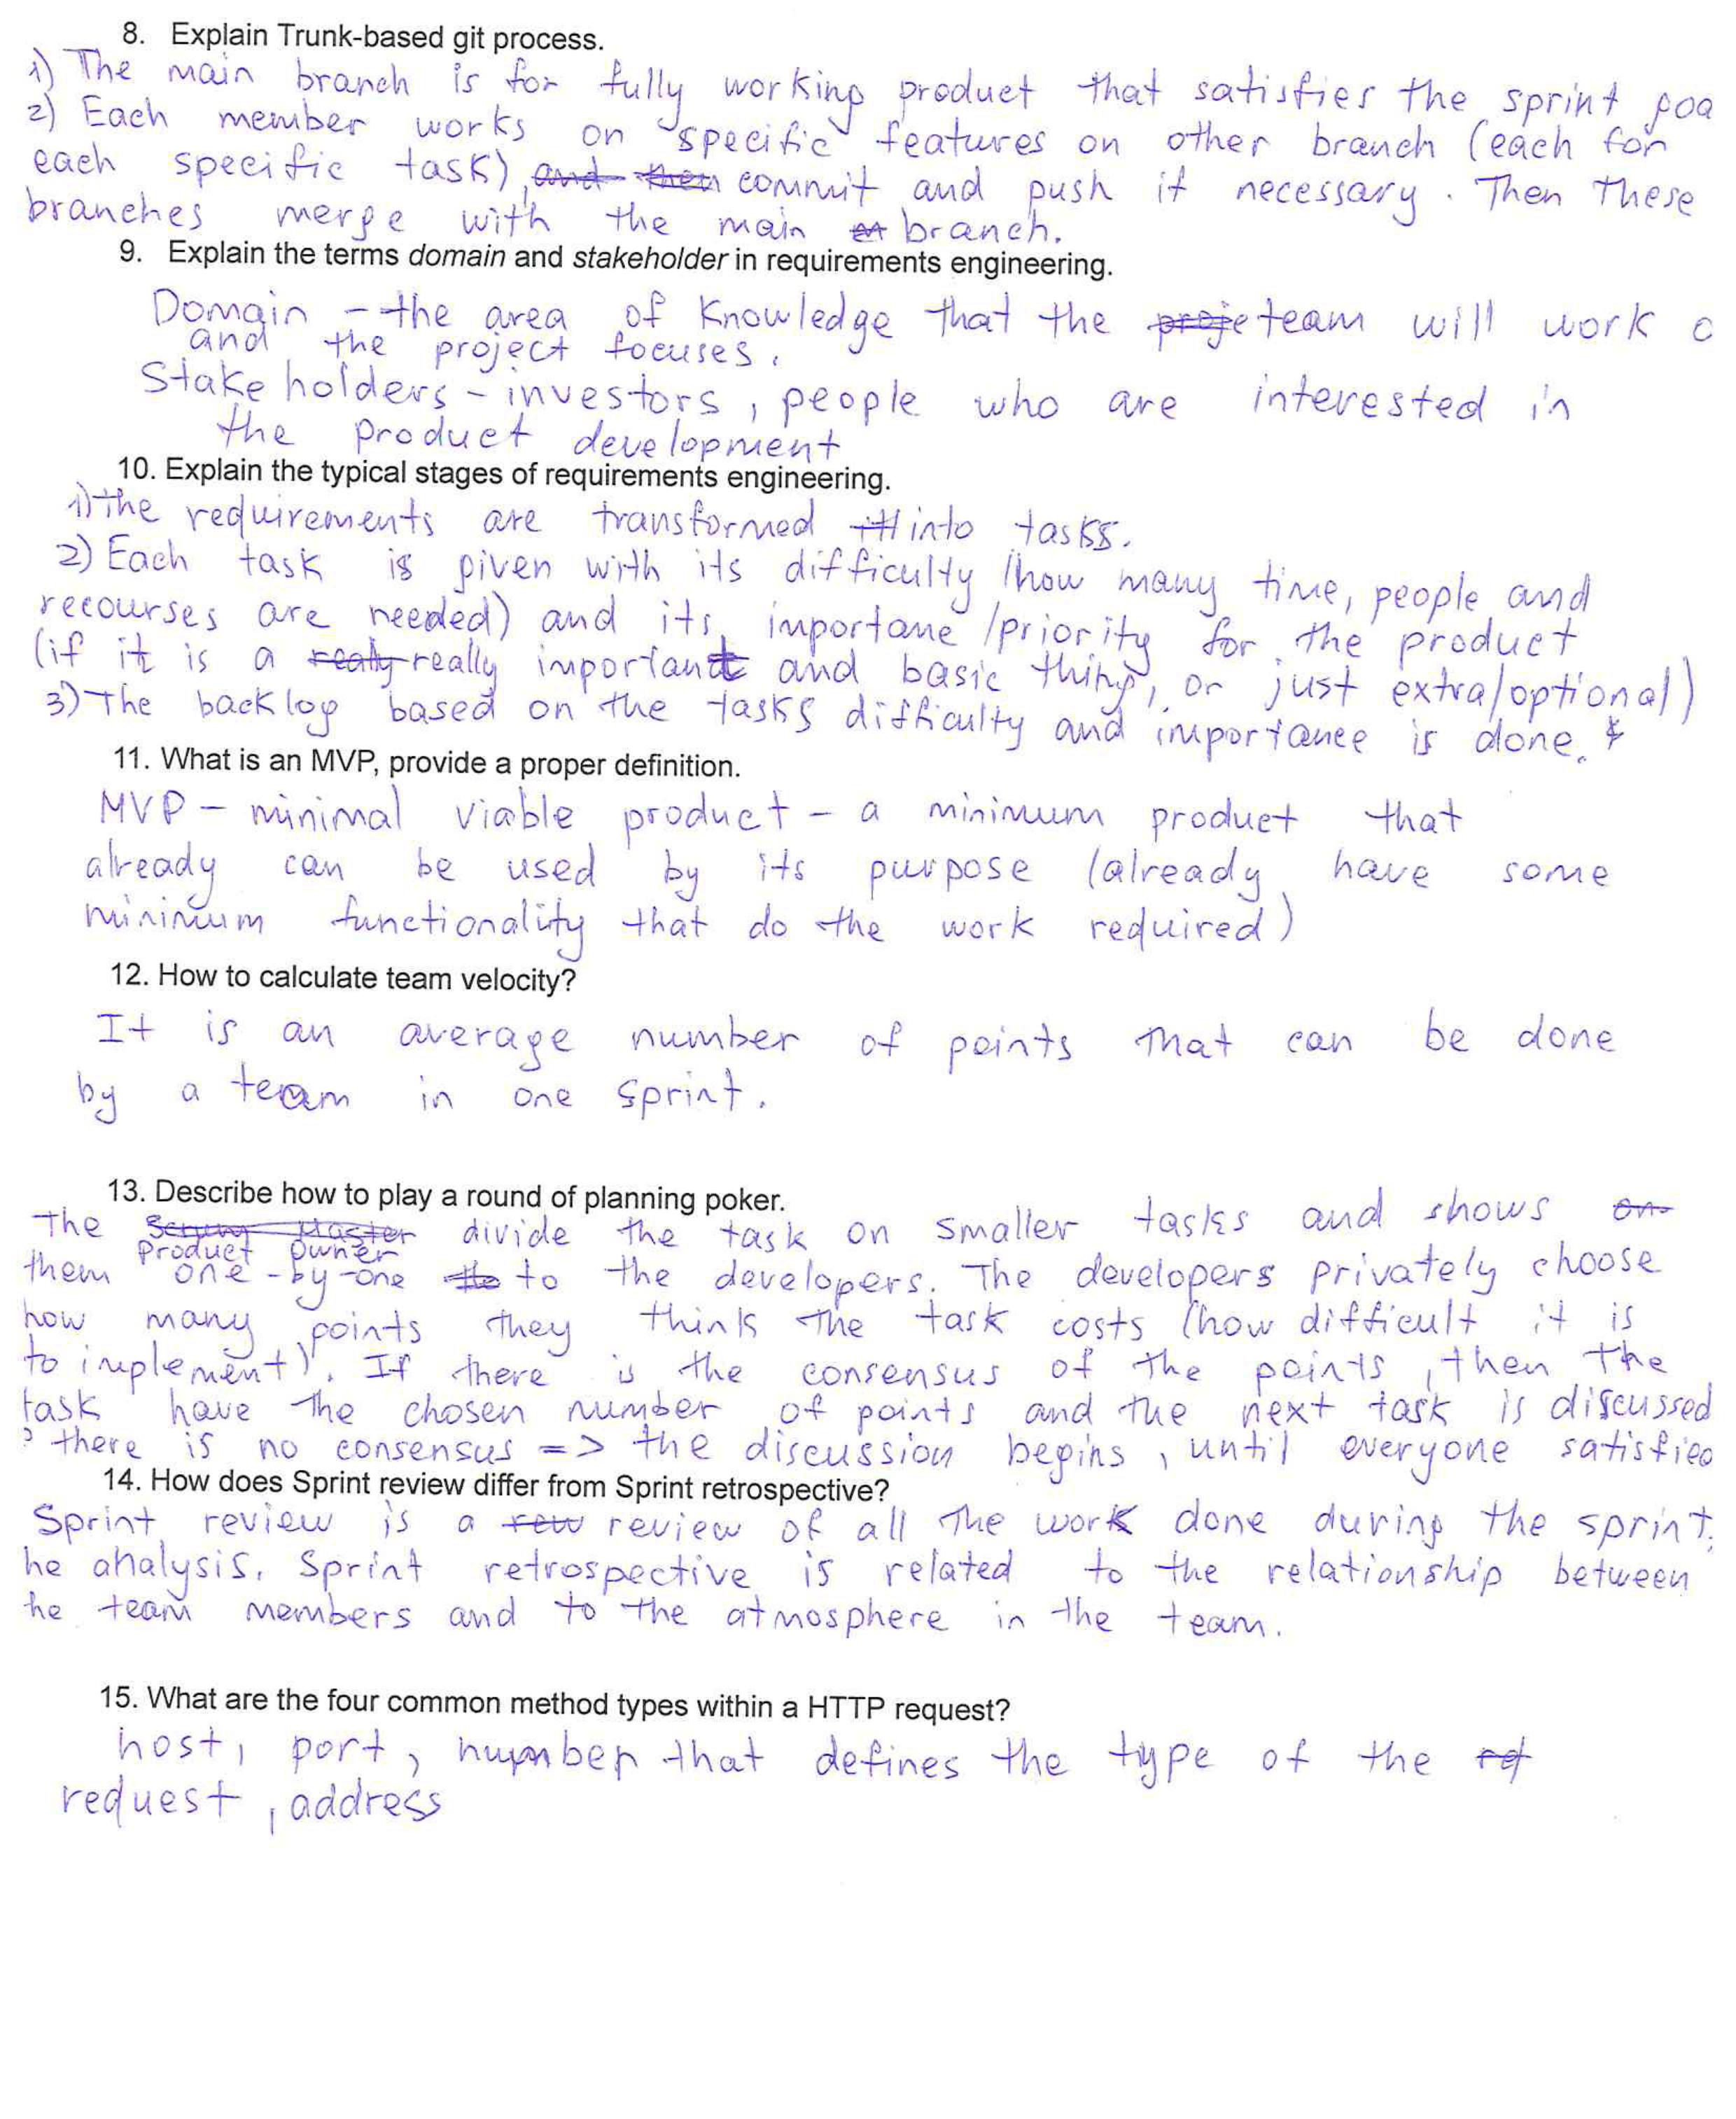 8. Explain Trunk-based git process.
1) The main branch is for fully working product that satisfies the sprint goa
2) Each member works on specific features on other branch (each for
each specific task), and then commit and push if necessary. Then these
branches merge with the main branch.
9. Explain the terms domain and stakeholder in requirements engineering.
Domain - the area of knowledge that the proje team will work o
and the project focuses.
Stakeholders - investors, people who are interested in
the product development
10. Explain the typical stages of requirements engineering.
1) The requirements are transformed into tasks.
2) Each task is given with its difficulty (how many time, people and
recourses are needed) and its importane/priority for the product
(if it is a realy really important and basic thing, or just extra/optional)
3) The backlog based on the tasks difficulty and importance is done.
11. What is an MVP, provide a proper definition.
MVP - minimal viable product - a minimum product that
already can be used by its purpose (already have some
minimum functionality that do the work required)
12. How to calculate team velocity?
It is an average number of points that can be done
by a team in one sprint.
13. Describe how to play a round of planning poker.
The Scrum Master divide the task on smaller tasks and shows on
product owner
them one-by-one to the developers. The developers privately choose
how many points they think the task costs (how difficult it is
to implement). If there is the consensus of the points, then the
task have the chosen number of points and the next task is discussed
there is no consensus => the discussion begins, until everyone satisfied
14. How does Sprint review differ from Sprint retrospective?
Sprint review is a rew review of all the work done during the sprint,
he analysis. Sprint retrospective is related to the relationship between
he team members and to the atmosphere in the team.
15. What are the four common method types within a HTTP request?
host, port, number that defines the type of the
request, address